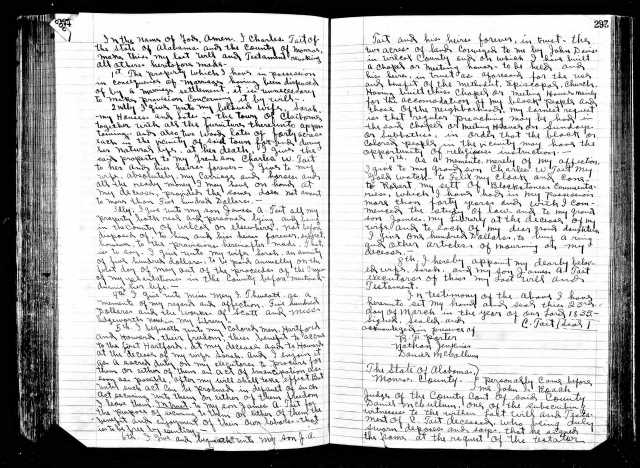 In the Name of God, Amen. I Charles Tait of
the State of Alabama and the County of Monroe,
make this my last will and Testament revoking
all others heretofore made.
1st The property which I have in possession
in consequence of marriage having been disposed
of by a marriage settlement, it is unnecessary
to make provision concerning it by will.
2ndly I give unto my beloved wife, Sarah,
my House and Lots in the town of Claiborne
together with all the furniture thereunto apper-
taining and also two wood lots of forty acres
each in the vicinity of said town for and during
her natural life. At her death I give the
said property to my Grand son Charles W. Tait
to him and his heirs forever. I give to my
wife, absolutely, my Carriage and horses and
all the ready money I may have on hand at
my decease, provided the same does not amount
to more than Five hundred Dollars.
3dly, I give unto my son James A Tait all my
property both real and personal lying and being
in the County of Wilcox or elsewhere, not before
disposed of to him and his heirs forever, subject,
however, to the provisions hereinafter made. That
is to say. I give unto my wife Sarah, an annuity
of five hundred dollars, to be paid annually on the
first day of May out of the proceeds of the crops
of my plantations in the County before mention-
during her life.
4th I give unto Miss Mary J Thweatt, as a
memento of my regard and affection, Five hundred
Dollars and the works of Scott and Miss
Edgeworth now in my library.
5th I bequeath unto my Colored Men, Hartford
and Howard, their freedom, this benefit to accrue
to the first Hartford, at my decease and to Howard
at the decease of my wife Sarah. And I enjoin it
as a sacred duty on my executors to procure for
them or either of them an act of emancipation as
soon as possible, after my will shall take effect. But
until such act can be procured in default of such
Act securing unto them or either of them freedom
I leave them in trust to my son James A Tait for
the purpose of securing to them or either of them the
benefit and enjoyment of their own labor, that
6th I Give and bequeath unto my son J. A.
297
Tait and his heirs forever, in trust, the
two acres of land conveyed to me by John Davis
in Wilcox County and on which I have built
a chapel or meeting house, to be held and
his heirs, in trust as aforesaid for the use
and benefit of the Methodist, Episcopal, Church,
Having built this Chapel or meeting House mainly
for the accommodation of my black people and
those of the neighborhood, my earnest request
is that regular preaching may be had in
the said Chapel or Meeting House on Sundays
or Sabbaths, in order that the black or
Colored people in the vicinity may have the
opportunity of religious instruction.
7th. As a memento, merely of my affection,
I give to my grand son Charles W. Tait my
to Robert my sett of Blackstones Commenta-
ries, which I have had in my possession
more than forty years and with I com-
menced the study of the law and to my grand
son James, my library at the decease of my
wife and to each of my dear grand daughters
I give one hundred dollars, to buy a ring
and other articles of mourning on my
decease.
8th, I hereby appoint my dearly belov-
ed wife, Sarah, and my son James A Tait
executors of this my last will and
Testament.
In testimony of the above I have
hereunto set my hand and seal this 23rd
day of March in the year of our Lord 1835
Signed, sealed and
acknowledged in presence of
C. Tait (seal)
Nathan Jenkins
Daniel McCollum
The State of Alabama,
Monroe County.
Personally came before
me John S. Roach
Judge of the County Court of said County
Daniel McCollum, one of the subscribing
witnesses to the within last will and Testa-
ment of C Tait deceased, who being duly
sworn deposes and says, that he signed
the same at the request of the testator